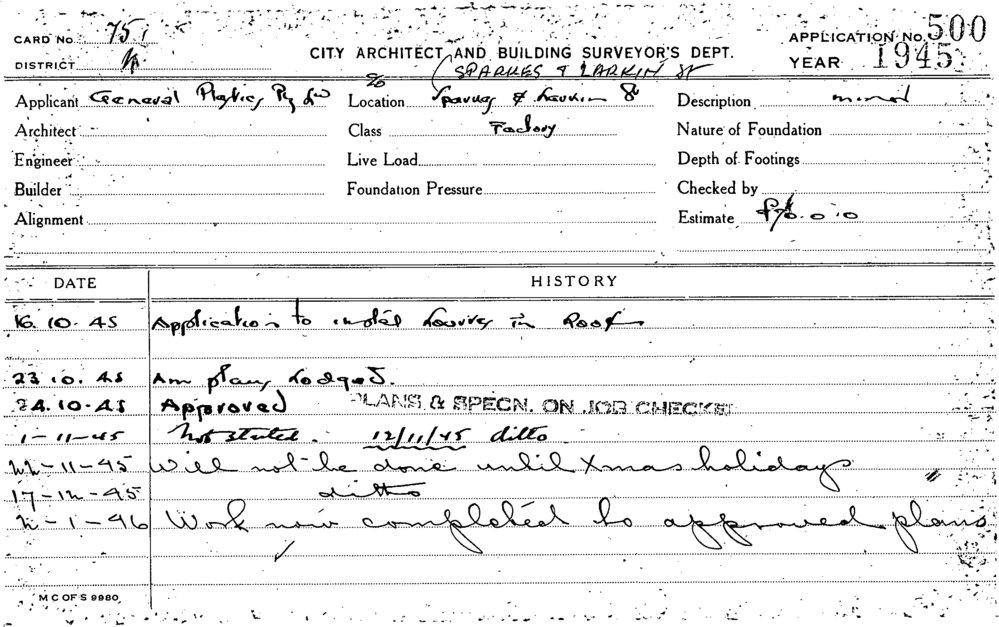 CARD No. 751
APPLICATION No. 500
CITY ARCHITECT AND BUILDING SURVEYOR'S DEPT.
DISTRICT
YEAR 1945
SPARKES & LARKIN ST
Applicant General Plastics Pty Ltd
Location Sparkes & Larkin St
Description minor
Architect
Class Factory
Nature of Foundation
Engineer
Live Load
Depth of Footings
Builder
Foundation Pressure
Checked by
Alignment
Estimate
DATE HISTORY
16.10.45 Application to instal Louvres in Roof
23.10.45 Am plans Lodged.
24.10.45 Approved PLANS & SPECN. ON JOB CHECKED
1-11-45 Not started. 12/11/45 ditto
22-11-45 Will not be done until Xmas holidays
17-12-45 ditto
2-1-46 Work now completed to approved plans
M C OF S 9980